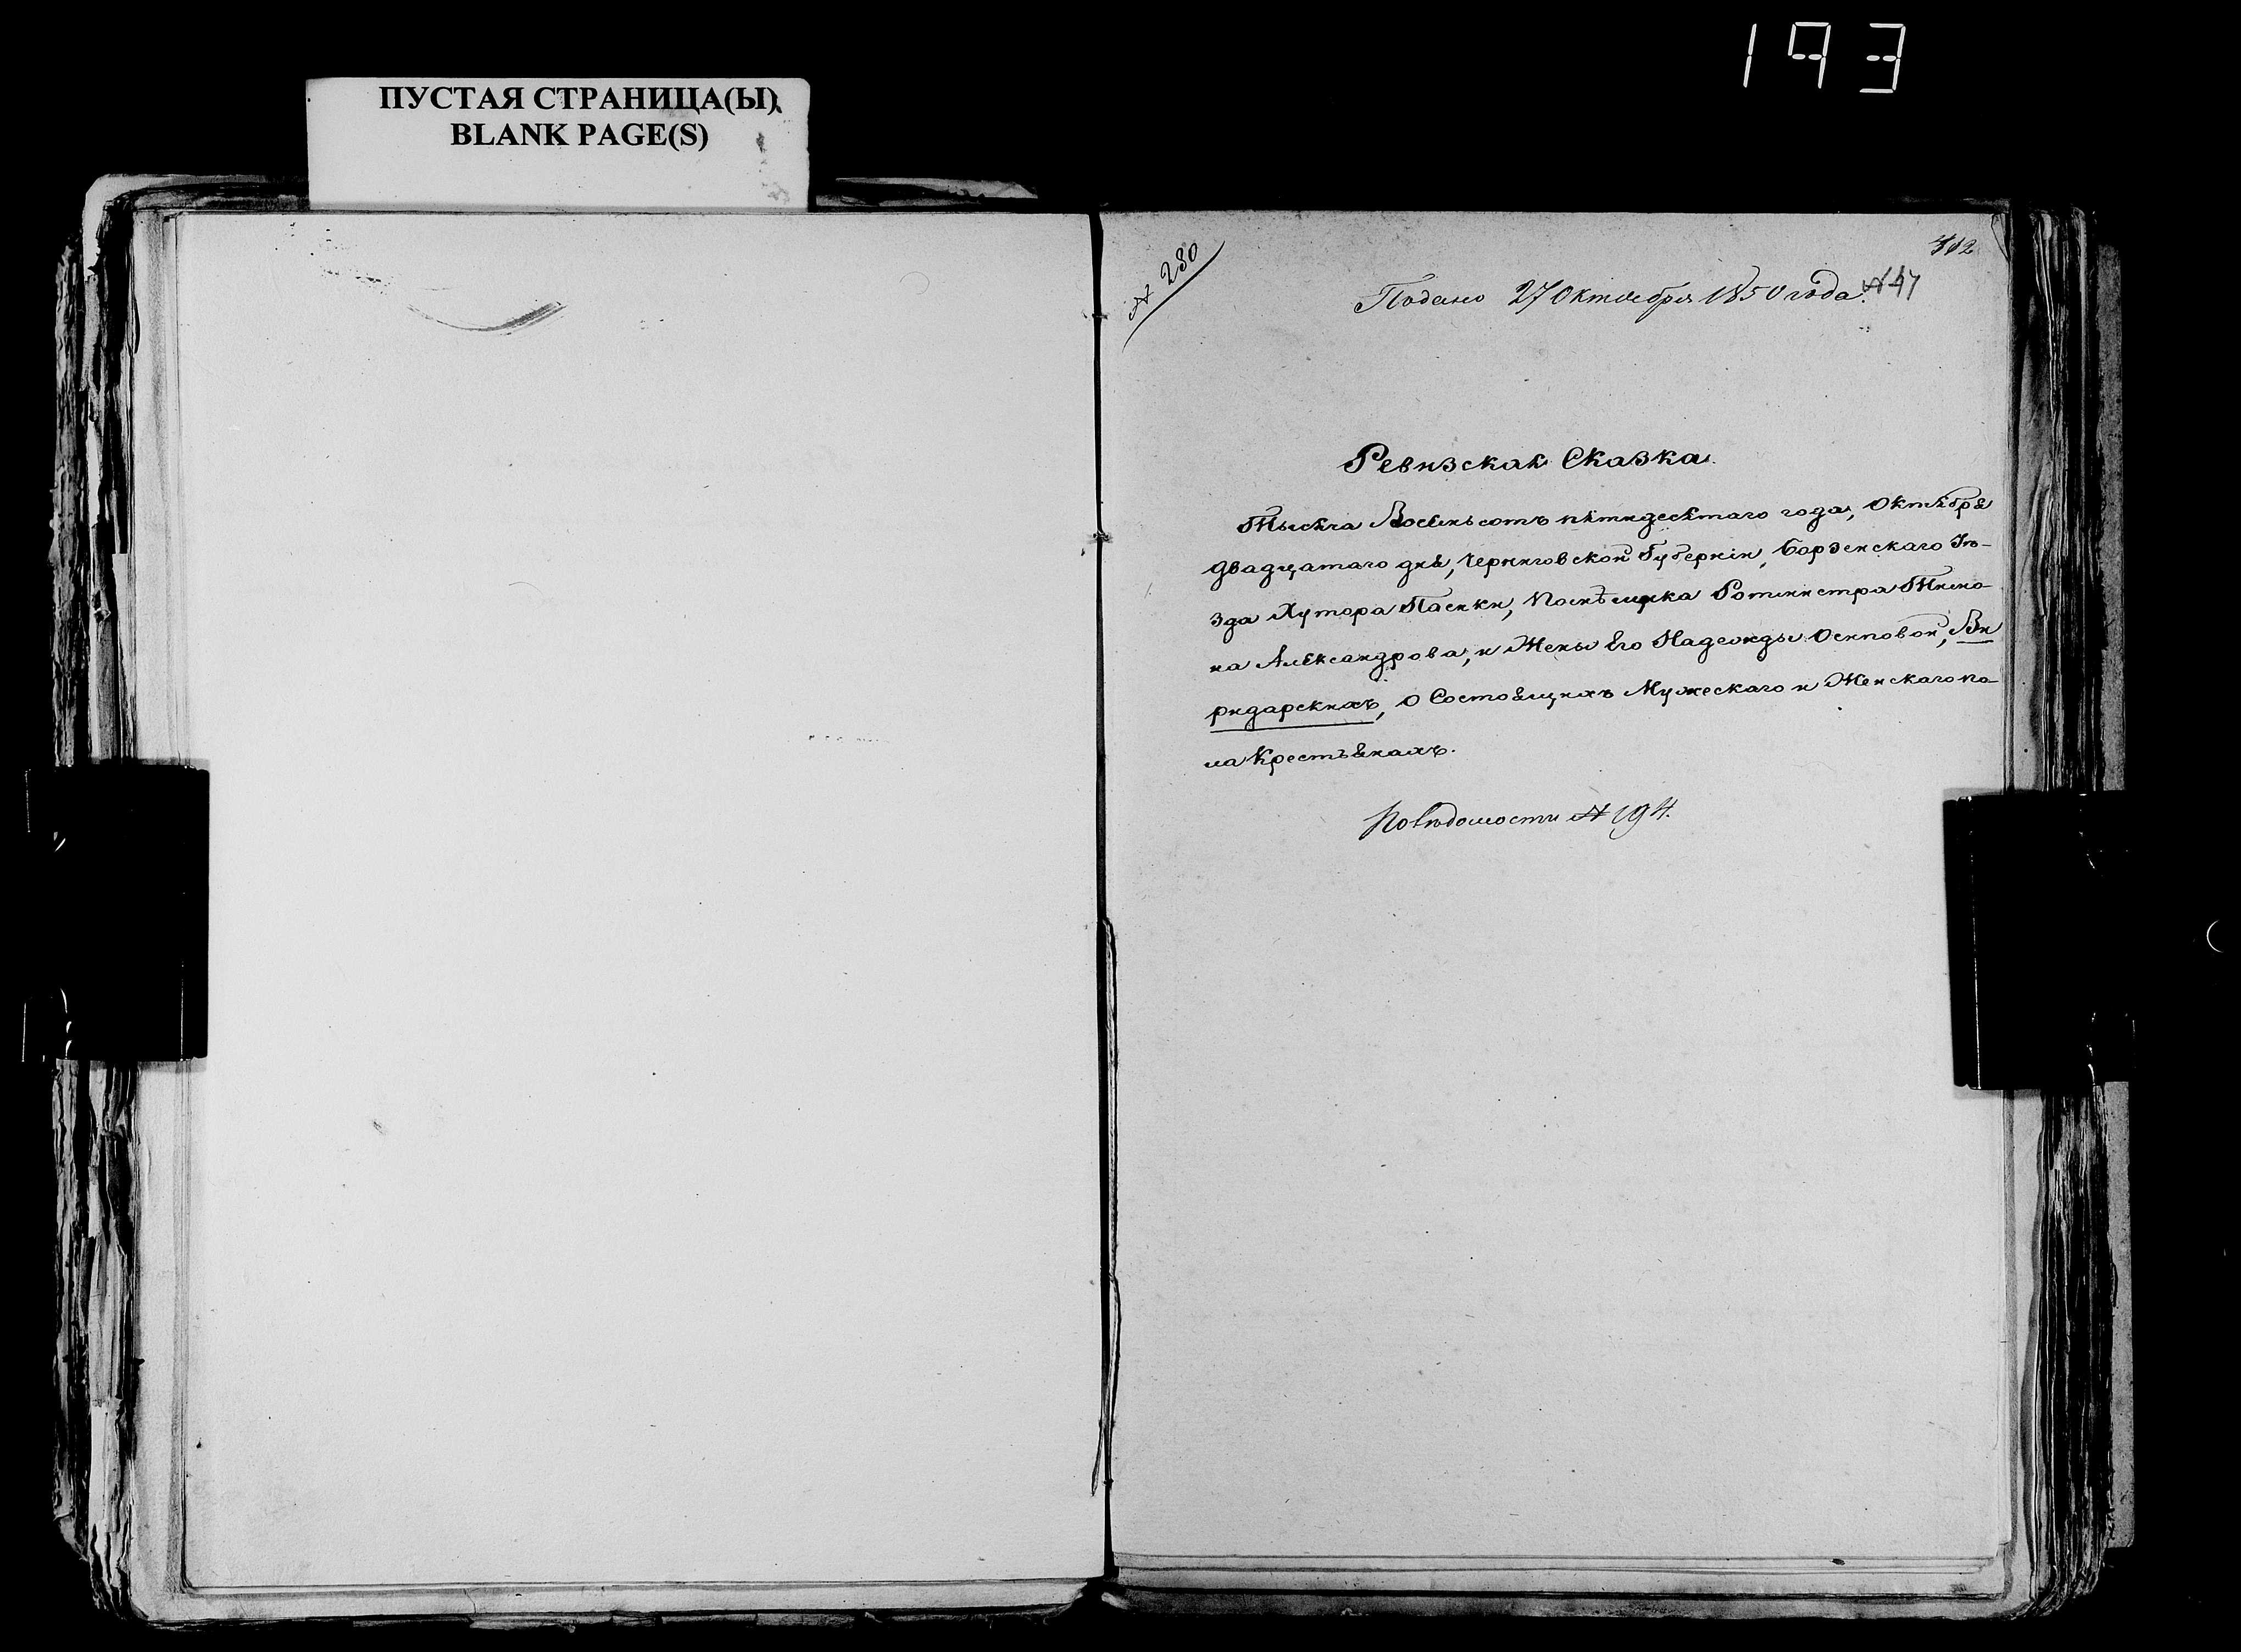 193
ПУСТАЯ СТРАНИЦА(Ы)
BLANK PAGE(S)
№ 280
Подано 27 Октября 1850 года. № 47
Ревизская Сказка.
Тысяча Восемьсотъ пятидесятаго года, Октября
двадцатаго дня, Черниговской Губерніи, Борзенскаго Уѣ-
зда Хутора Пасѣки, Помѣщика Ротмистра
на Александрова, и Жены Его Надежды Осиповой, Ви
ридарскихъ, о Состоящихъ Мужескаго и Женскаго по-
ла Крестьянахъ.
По вѣдомости № 194.